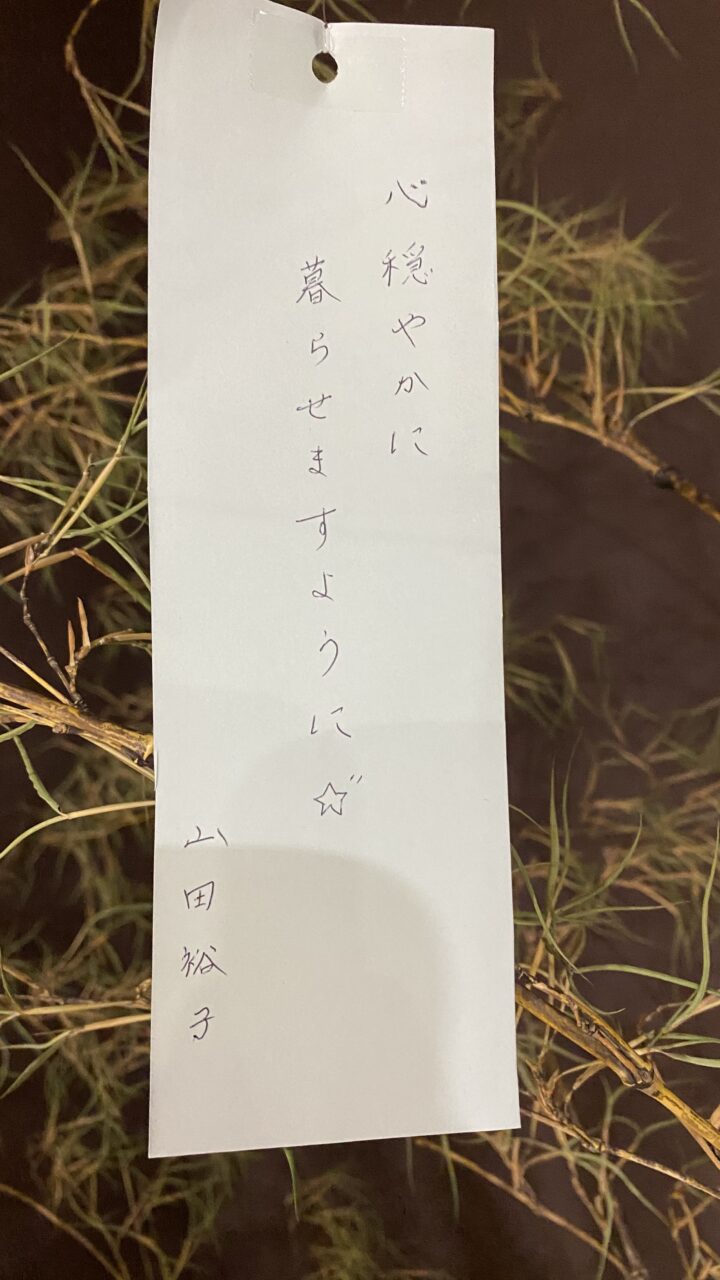 心穏やかに
暮らせますように☆
山田裕子